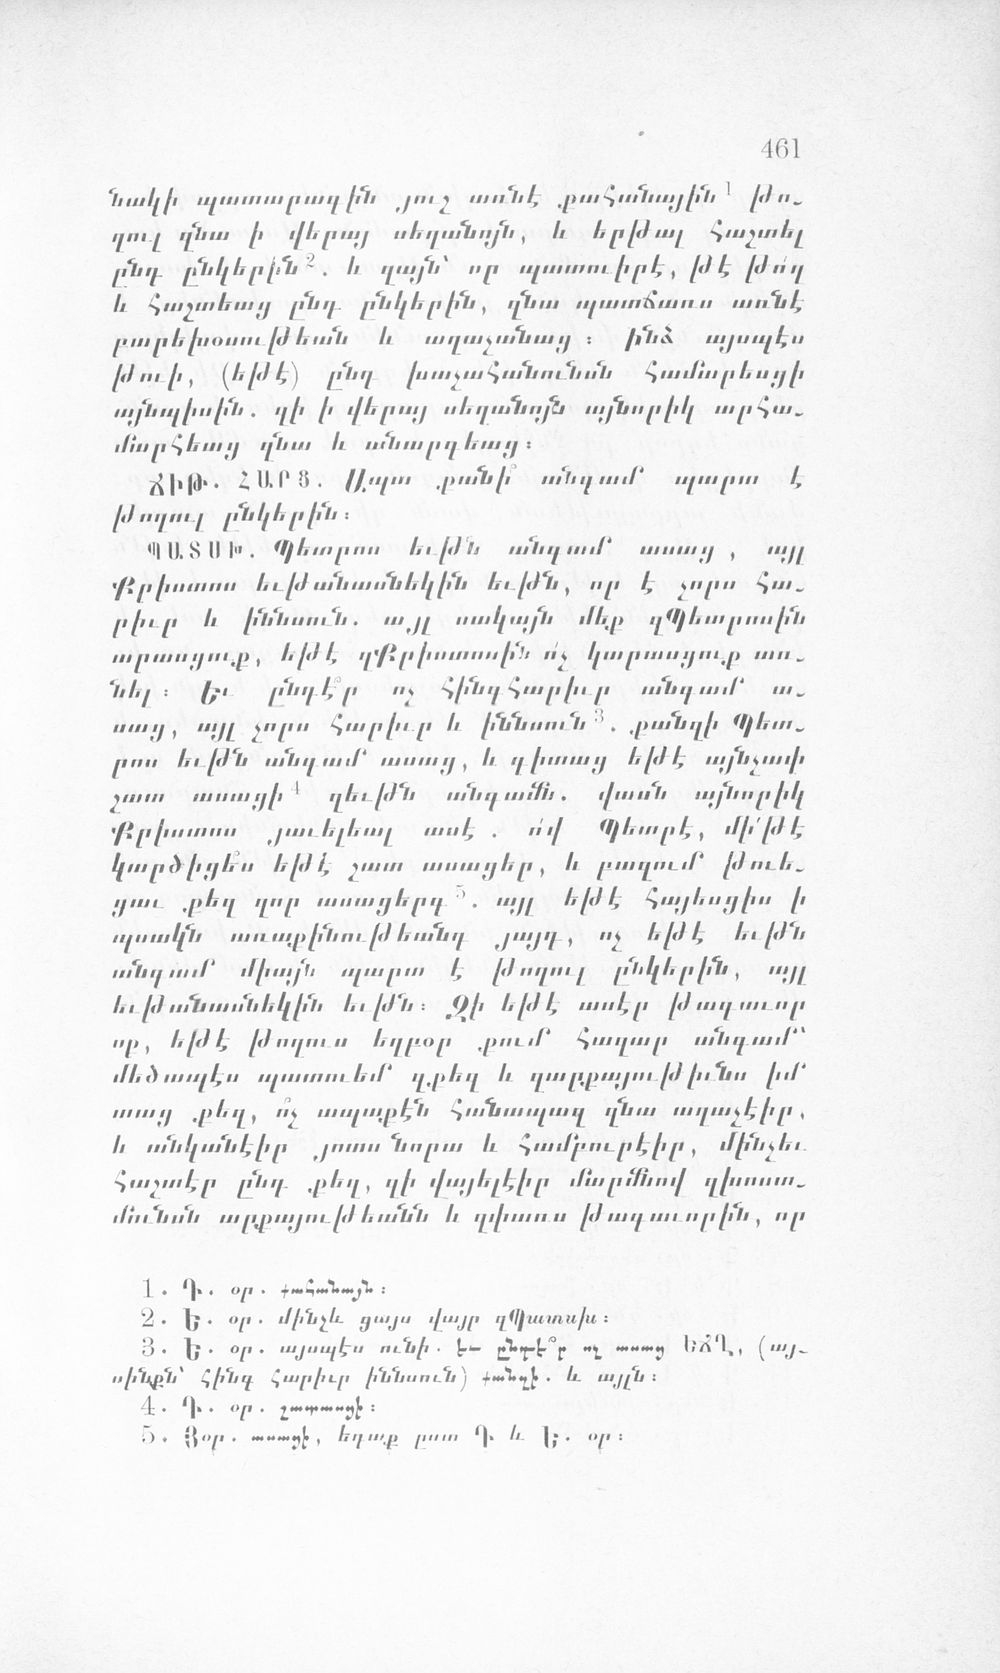 461
նակի պատարագին յուշ առնէ քահանային 1 թո-
ղուլ զնա ի վերայ սեղանոյն, և երթալ հաշտել
ընդ ընկերին 2. և զայն՝ որ պատուիրէ, թէ թո՛ղ
և հաշտեաց ընդ ընկերին, զնա պատճառս առնէ
բարեխօսութեան և աղաչանաց։ Ինձ այսպէս
թուի, (եթէ) ընդ խաչահանունսն համարեսցի
այնպիսին. զի ի վերայ սեղանոյն այնորիկ արհա-
մարհեաց զնա և անարգեաց։
ՃԻԹ. ՀԱՐՑ. Ապա քանի՞ անգամ պարտ է
թողուլ ընկերին։
ՊԱՏԱԽ. Պետրոս եւթն անգամ ասաց, այլ
Քրիստոս եւթանասնեկին եւթն, որ է չորս հա-
րիւր և իննսուն. այլ սակայն մեք զՊետրոսին
արասցուք, եթէ զՔրիստոսին ո՛չ կարասցուք առ-
նել։ Եւ ընդէ՞ր ոչ հինգհարիւր անգամ ա-
սաց, այլ չորս հարիւր և իննսուն 3. քանզի Պետ-
րոս եւթն անգամ ասաց, և գիտաց եթէ այնչափ
շատ ասացի 4 զեւթն անգամն. վասն այնորիկ
Քրիստոս յաւելեալ ասէ. ո՛վ Պետրէ, մի՛ թէ
կարծիցե՞ս եթէ շատ ասացեր, և բազում թուե-
ցաւ քեզ զոր ասացերդ 5. այլ եթէ հայեսցիս ի
պսակն առաքինութեանդ յայդ, ոչ եթէ եւթն
անգամ միայն պարտ է թողուլ ընկերին, այլ
եւթանասնեկին եւթն։ Զի եթէ ասէր թագաւոր
ոք, եթէ թողուս եղբօր քում հազար անգամ՝
մեծապէս պատուեմ զքեզ և զարքայութիւնս իմ
տաց քեզ, ո՞չ ապաքէն հանապազ զնա աղաչէիր,
և անկանէիր յոտս նորա և համբուրէիր, մինչեւ
հաշտէր ընդ քեզ, զի վայելէիր մարմնով զխոստ-
մունսն արքայութեանն և զփառս թագաւորին, որ
1. Դ. օր. քահանայն։
2. Ե. օր. մինչև ցայս վայր զՊատսխ։
3. Ե. օր. այսպէս ունի. եւ ընդէ՞ր ոչ ասաց ԵՃՂ, (այ-
սինքն՝ հինգ հարիւր իննսուն) քանզի. և այլն։
4. Դ. օր. շատասցի։
5. Յօր. ասացի, եդաք ըստ Դ և Ե. օր։